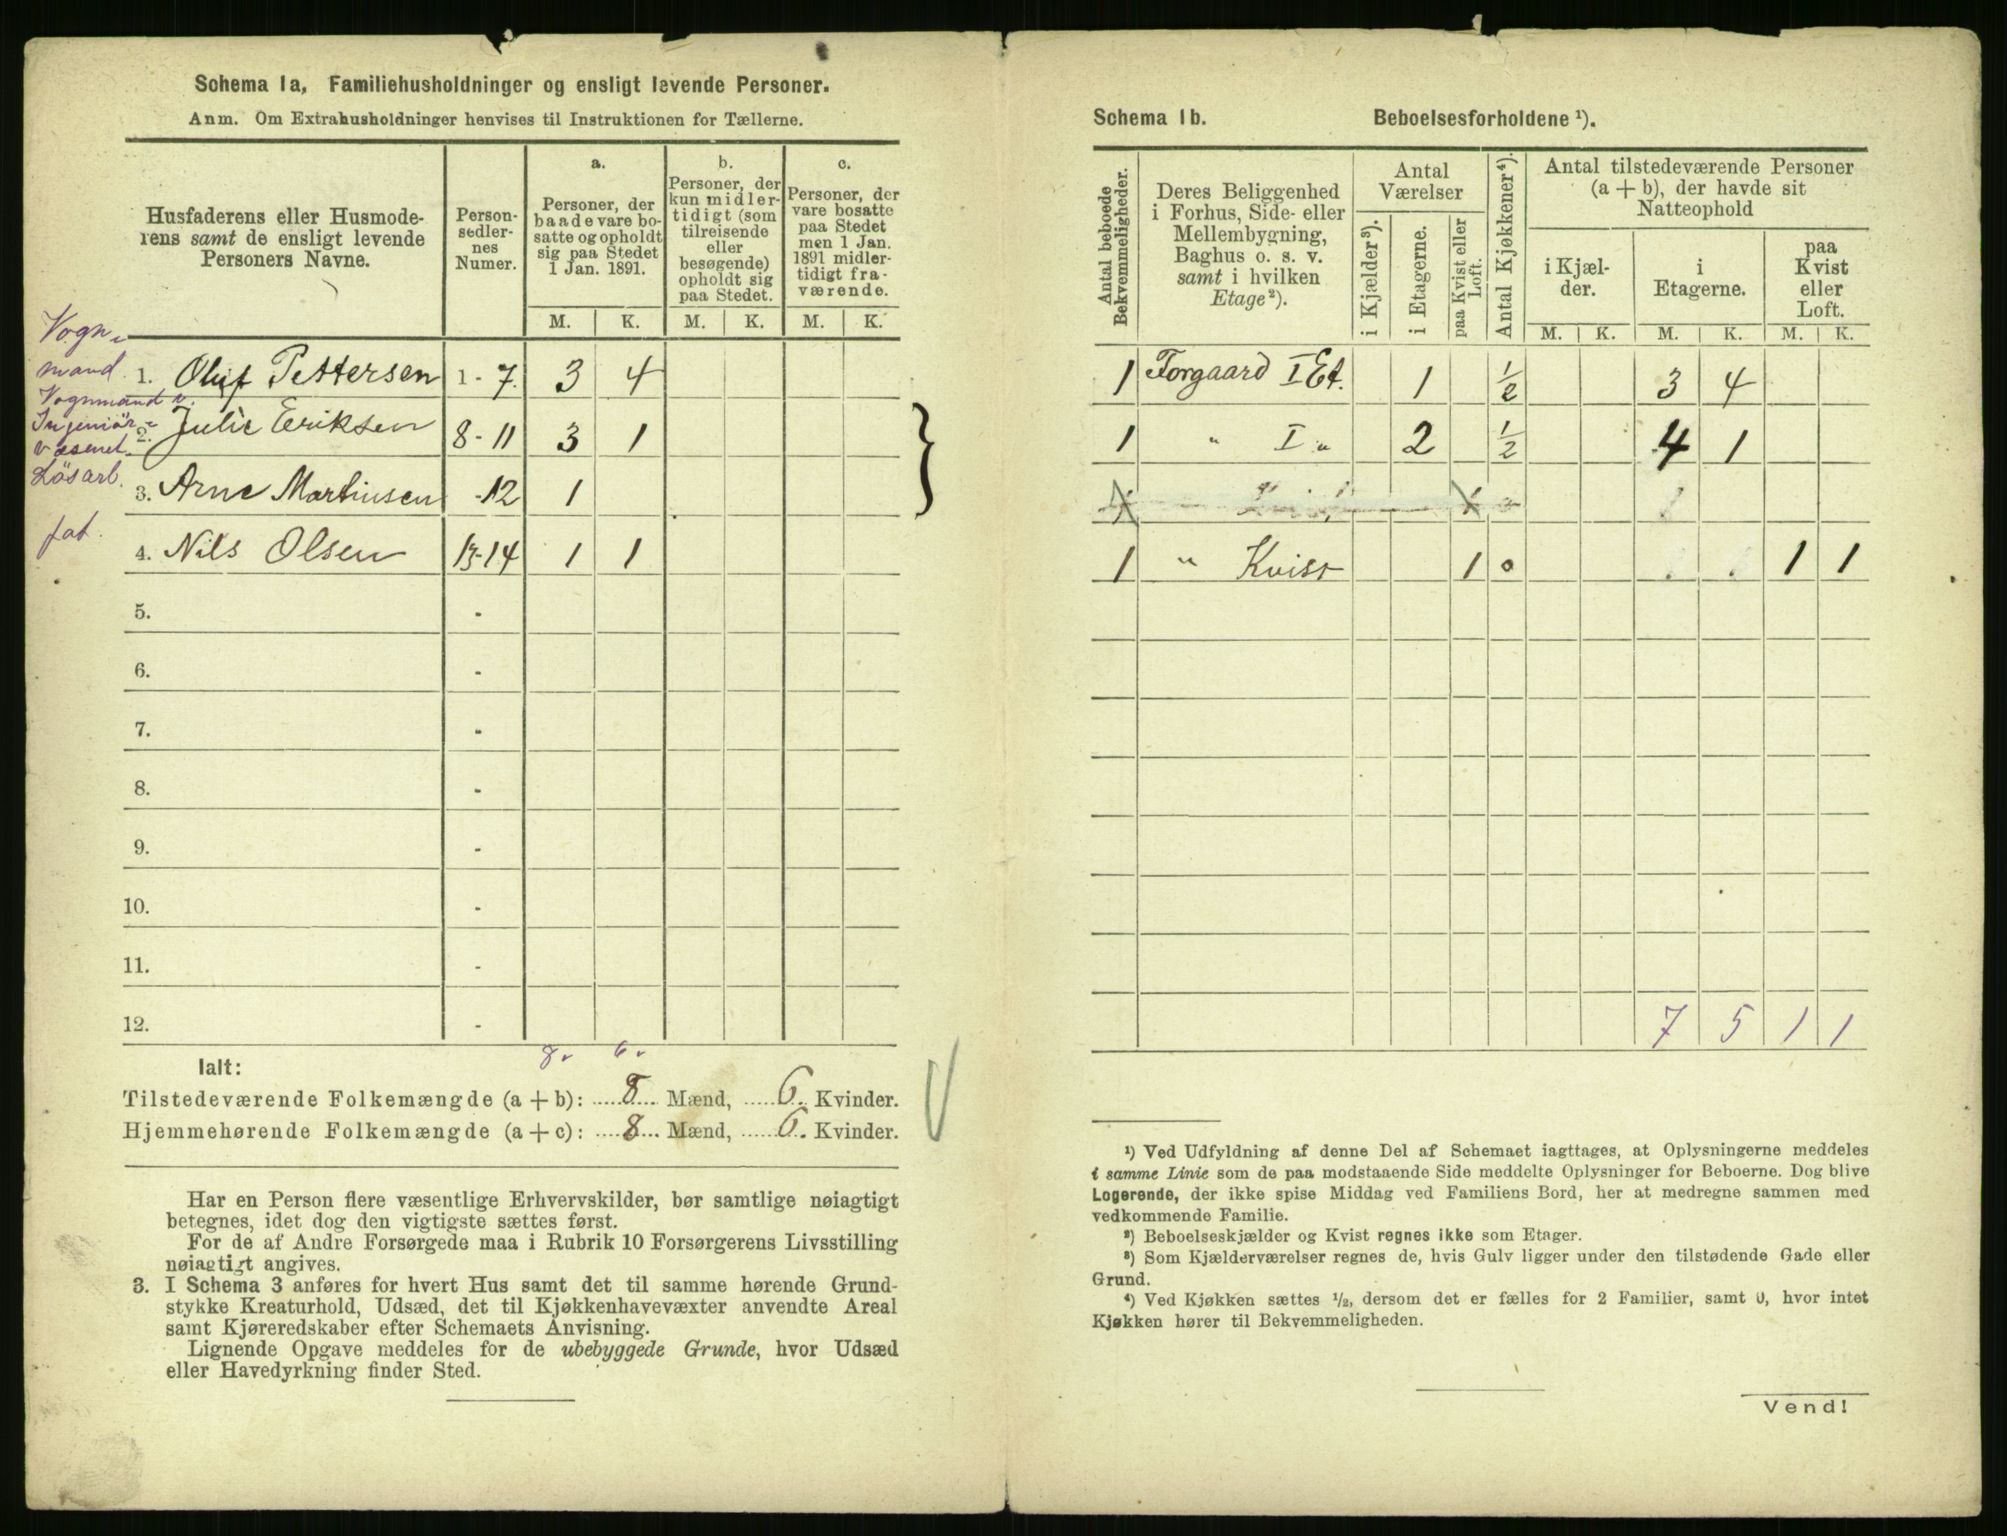 Schema 1a, Familiehusholdninger og ensligt levende Personer.
Anm. Om Extrahusholdninger henvises til Instruktionen for Tællerne.
Husfaderens eller Husmode-
rens samt de ensligt levende
Personers Navne.
Person-
sedler-
nes
Numer.
a.
Personer, der
baade vare bo-
satte og opholdt
sig paa Stedet
1 Jan. 1891.
b.
Personer, der
kun midler-
tidigt (som
tilreisende
eller
besøgende)
opholdt sig
paa Stedet.
c.
Personer, der
vare bosatte
paa Stedet
men 1 Jan.
1891 midler-
tidigt fra-
værende.
M. K. M. K. M. K.
Vogn-
mand 1. Oluf Pettersen 1 - 7. 3 4
Vognmand v.
Ingeniör-
væsenet. 2. Julie Eriksen 8 - 11 3 1
Lösarb. 3. Arne Martinsen -12 1
fat. 4. Nils Olsen 13-14 1 1
5. -
6. -
7. -
8. -
9. -
10. -
11. -
12. -
8 6
Ialt:
Tilstedeværende Folkemængde (a + b): 8 Mænd, 6. Kvinder.
Hjemmehørende Folkemængde (a + c): 8 Mænd, 6. Kvinder.
Har en Person flere væsentlige Erhvervskilder, bør samtlige nøiagtigt
betegnes, idet dog den vigtigste sættes først.
For de af Andre Forsørgede maa i Rubrik 10 Forsørgerens Livsstilling
nøiagtigt angives.
3. I Schema 3 anføres for hvert Hus samt det til samme hørende Grund-
stykke Kreaturhold, Udsæd, det til Kjøkkenhavevæxter anvendte Areal
samt Kjøreredskaber efter Schemaets Anvisning.
Lignende Opgave meddeles for de ubebyggede Grunde, hvor Udsæd
eller Havedyrkning finder Sted.
Schema 1b. Beboelsesforholdene ¹).
Antal beboede
Bekvemmeligheder.
Deres Beliggenhed
i Forhus, Side- eller
Mellembygning,
Baghus o. s. v.
samt i hvilken
Etage²).
Antal
Værelser
i Kjælder³).
i Etagerne.
paa Kvist eller
Loft.
Antal Kjøkkener⁴).
Antal tilstedeværende Personer
(a + b), der havde sit
Natteophold
i Kjæl-
der.
i
Etagerne.
paa
Kvist
eller
Loft.
M. K. M. K. M. K.
1 Forgaard I Et. 1 ½ 3 4
1 " I " 2 ½ 4 1
1 " Kvist 1 0 1 1
7 5 1 1
¹) Ved Udfyldning af denne Del af Schemaet iagttages, at Oplysningerne meddeles
i samme Linie som de paa modstaaende Side meddelte Oplysninger for Beboerne. Dog blive
Logerende, der ikke spise Middag ved Familiens Bord, her at medregne sammen med
vedkommende Familie.
²) Beboelseskjælder og Kvist regnes ikke som Etager.
³) Som Kjælderværelser regnes de, hvis Gulv ligger under den tilstødende Gade eller
Grund.
⁴) Ved Kjøkken sættes ½, dersom det er fælles for 2 Familier, samt 0, hvor intet
Kjøkken hører til Bekvemmeligheden.
Vend!